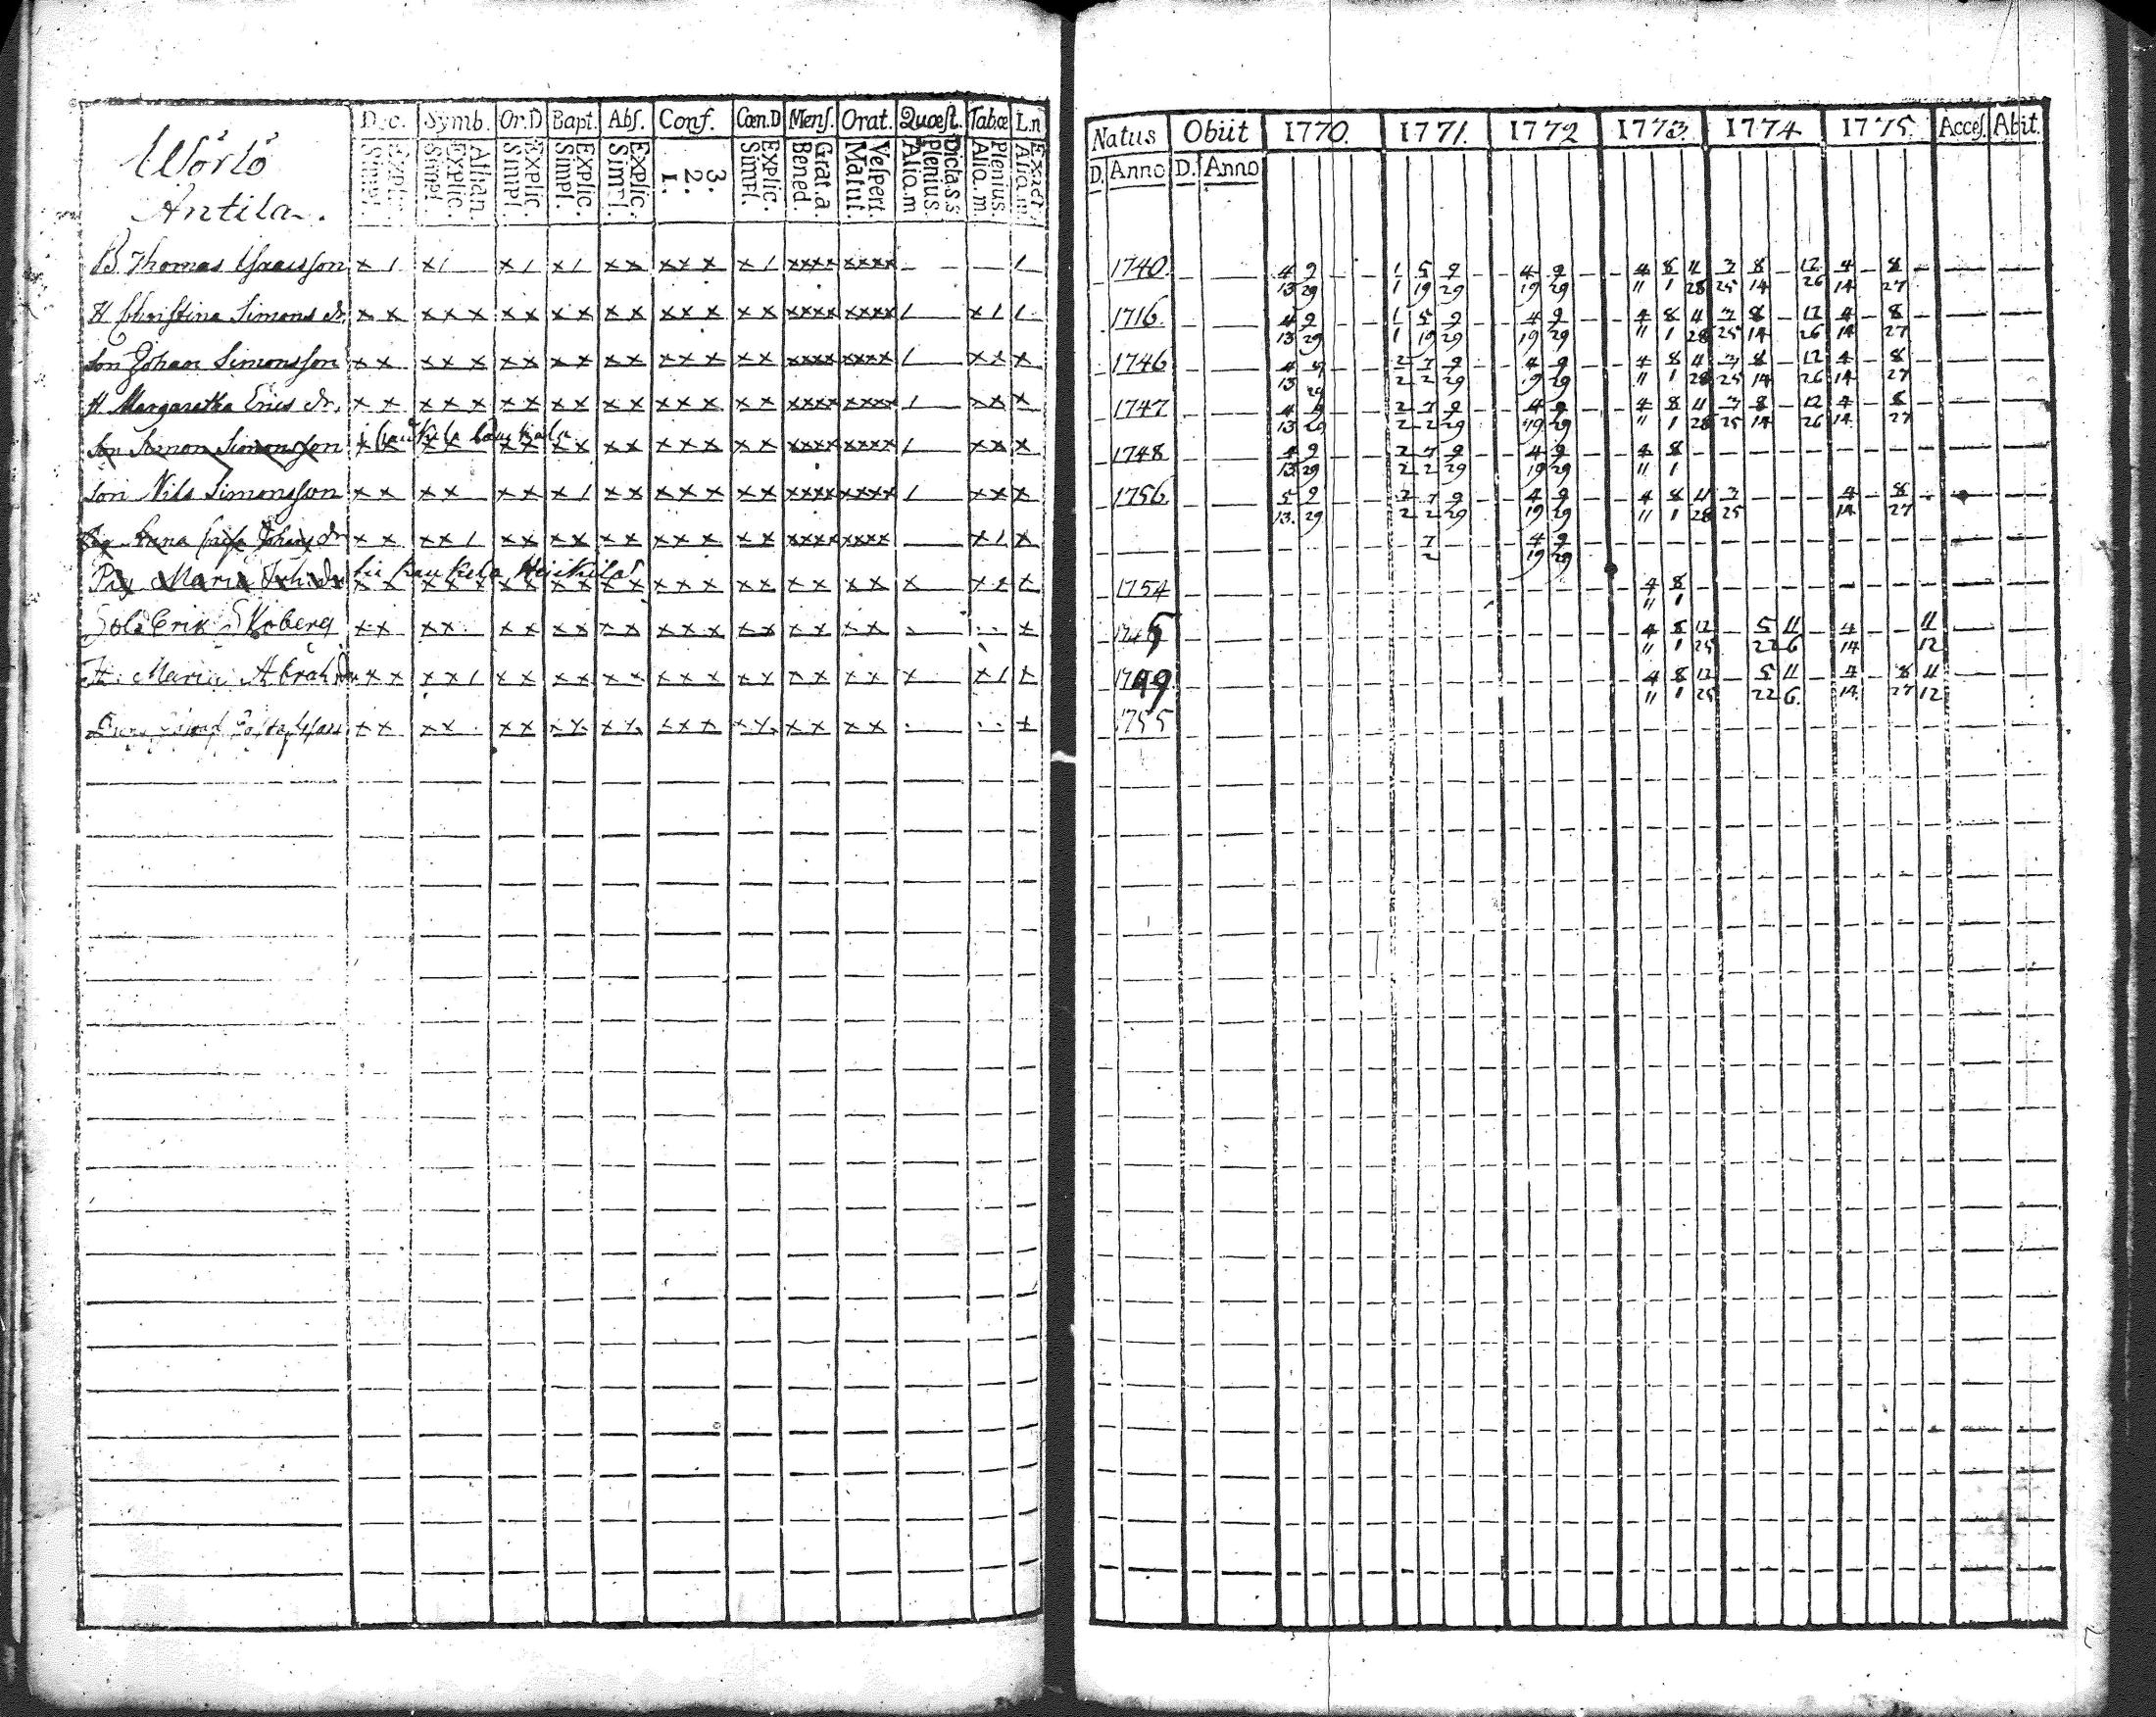 Antila.
Dec. Symb. Or.D Bapt. Abſ. Conf. Cœn.D Menſ. Orat. Quæſt. Tabæ L.n
Explic. Simpl. Athan. Explic. Simpl. Explic. Simpl. Explic. Simpl. Explic. Simpl. 3. 2. 1. Explic. Simpl. Grat.a. Bened. Veſpert. Matut. Dicta.s.s Plenius. Aliq.m Plenius. Aliq.m. Exact. Aliq.m
Natus Obiit 1770. 1771. 1772 1773. 1774 1775. Acceſ. Abit.
D. Anno D. Anno
B. Thomas x / x / x / x / x x x x x x / xxxx xxxx / 1740 4 9 1 5 9 4 9 4 8 11 2 8 12 4 8
13 29 1 19 29 19 29 11 1 28 25 14 26 14 27
H Christina Simons dr. x x x x x x x x x x x x x x x x xxxx xxxx / x / / 1716. 4 9 1 5 9 4 9 4 8 11 2 8 12 4 8
13 29 1 19 29 19 29 11 1 28 25 14 26 14 27
Son Johan Simonsson x x x x x x x x x x x x x x x x xxxx xxxx / x x x 1746 4 9 2 7 9 4 9 4 8 11 2 8 12 4 8
13 29 2 2 29 19 29 11 1 28 25 14 26 14 27
H Margaretha Erics dr. x x x x x x x x x x x x x x x x xxxx xxxx / x x x 1747 4 9 2 7 9 4 9 4 8 11 2 8 12 4 8
13 29 2 2 29 19 29 11 1 28 25 14 26 14 27
Son Simon Simonsson x x x x x x x x x x x x x x x xxxx xxxx / x x x 1748 4 9 2 7 9 4 9 4 8
13 29 2 2 29 19 29 11 1
Son Nils Simonsson x x x x x x x / x x x x x x x xxxx xxxx / x x x 1756 5 9 2 7 9 4 9 4 8 11 2 4 8
13. 29 2 2 29 19 29 11 1 28 25 14 27
Anna dr x x x x / x x x x x x x x x x x xxxx xxxx x / x 7 4 9
2 19 29
Pig. Maria Joh. dr x x x x x x x x x x x x x x x x x x x x x x x x 1754 4 8
11 1
Sold Erik x x x x x x x x x x x x x x x x x x x x 4 8 12 5 11 4 11
11 1 25 22 6 14 12
H. Maria Abrah dr x x x x / x x x x x x x x x x x x x x x x x / x 4 8 12 5 11 4 8 11
11 1 25 22 6. 14 27 12
x x x x x x x x x x x x x x x x x x x x 1755